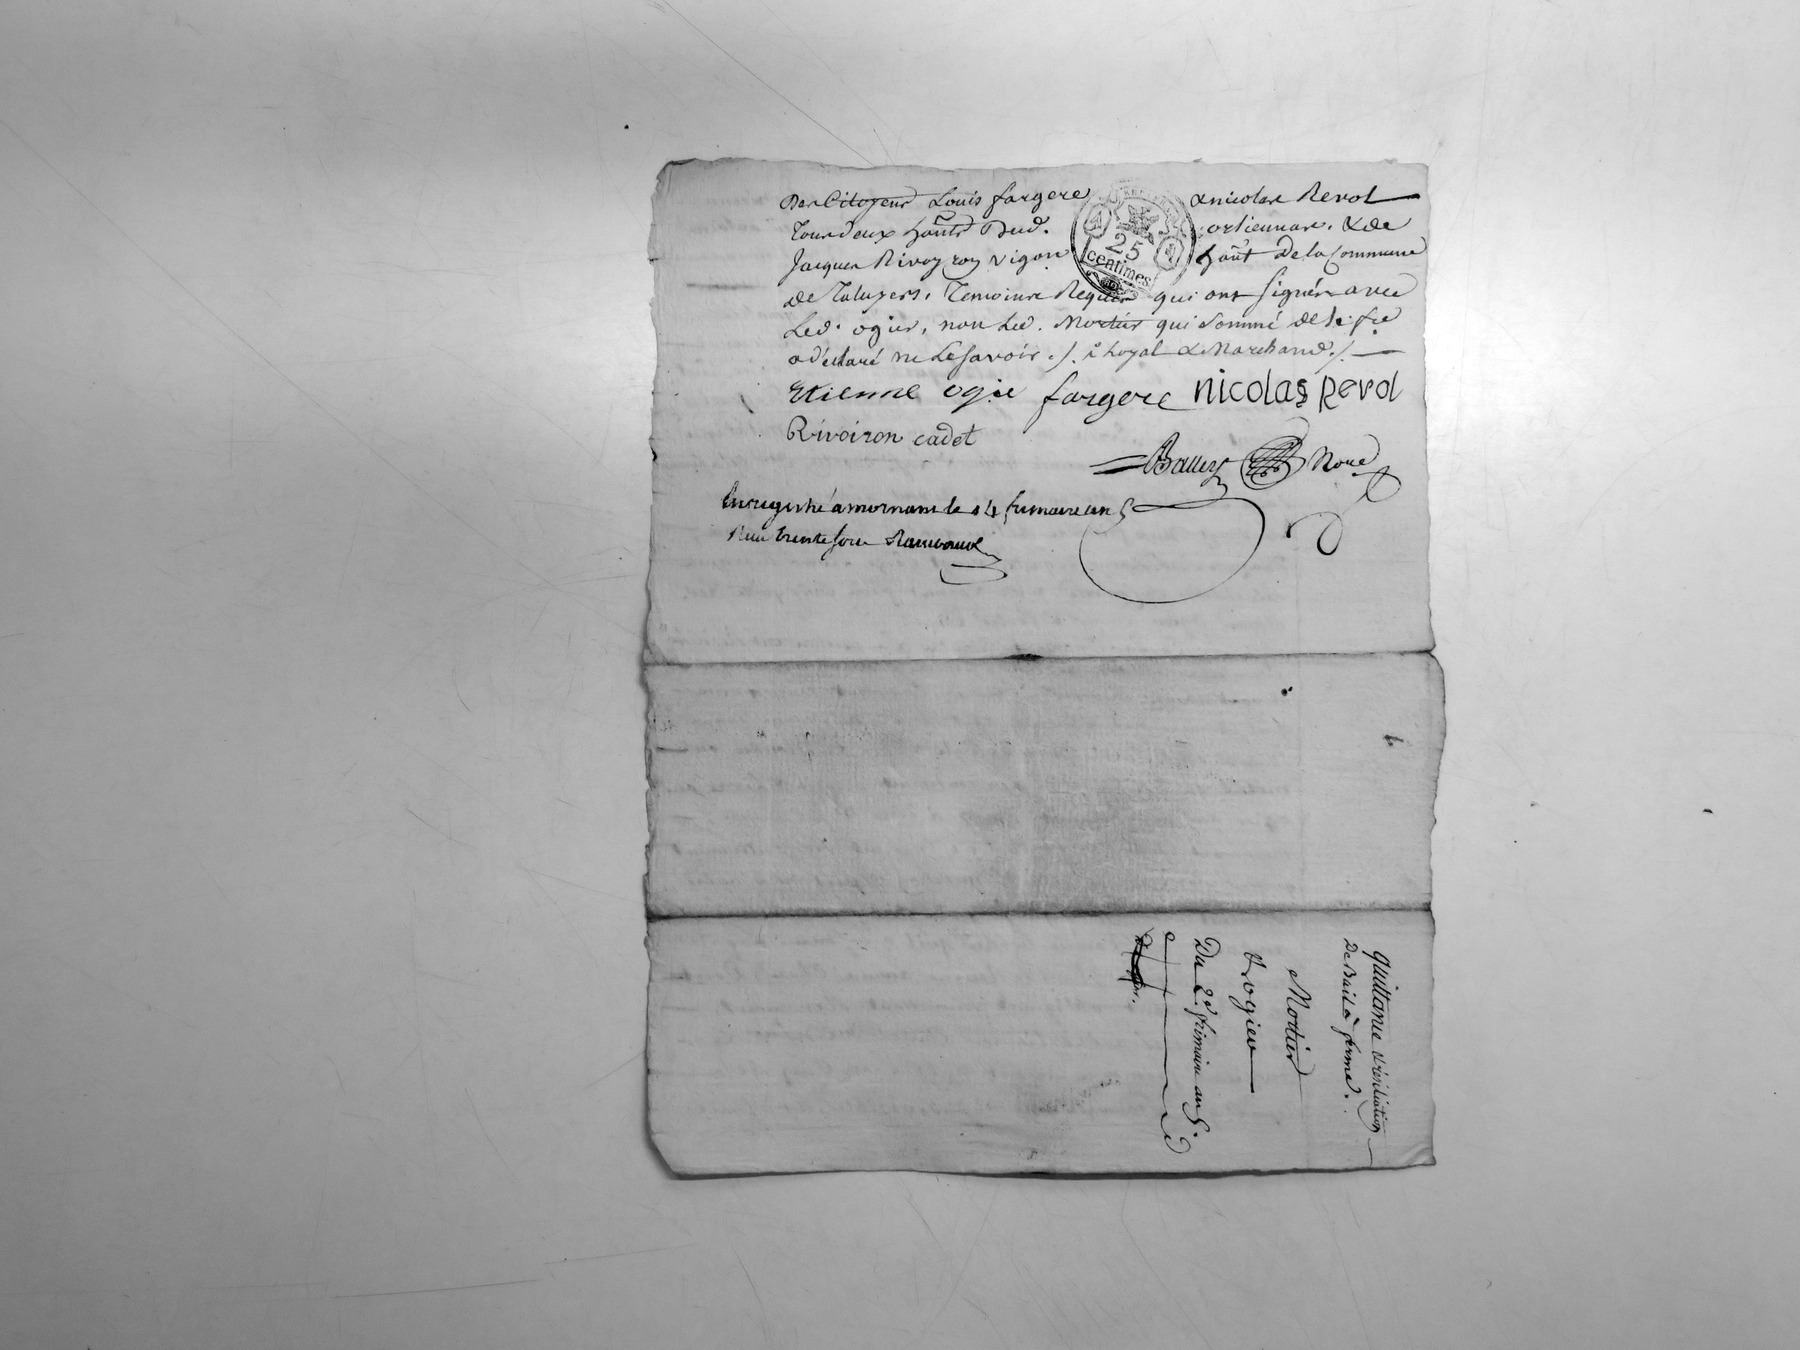 Des Citoyens Louis fargere & nicolas Revol
Tous deux hãnts Dud. orliennas. & de
Jacques Rivoyron vigon hãnt de la Commune
de Taluyers. Temoins Requis qui ont signés avec
Led. ogier, non Led. Mortier qui sommé de le fre
a déclaré ne Le savoir ./. à Loyal & Marchand ./.
Etienne ogie fargere nicolas Revol
Rivoiron cadet
Balley Nore
25
centimes
Enregistré a mornant le 14 frimaire an 5
Reçu trente sous
quittance & résiliation
De Bail à ferme.
Mortier
& ogier
Du 2d. frimaire an 5.